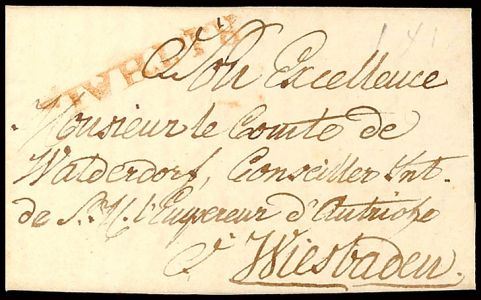 à
Son Excellence
Monsieur le Comte de
Walderdorf, Conseiller Int.
de S. M. l'Empereur d'Autriche
à Wiesbaden.